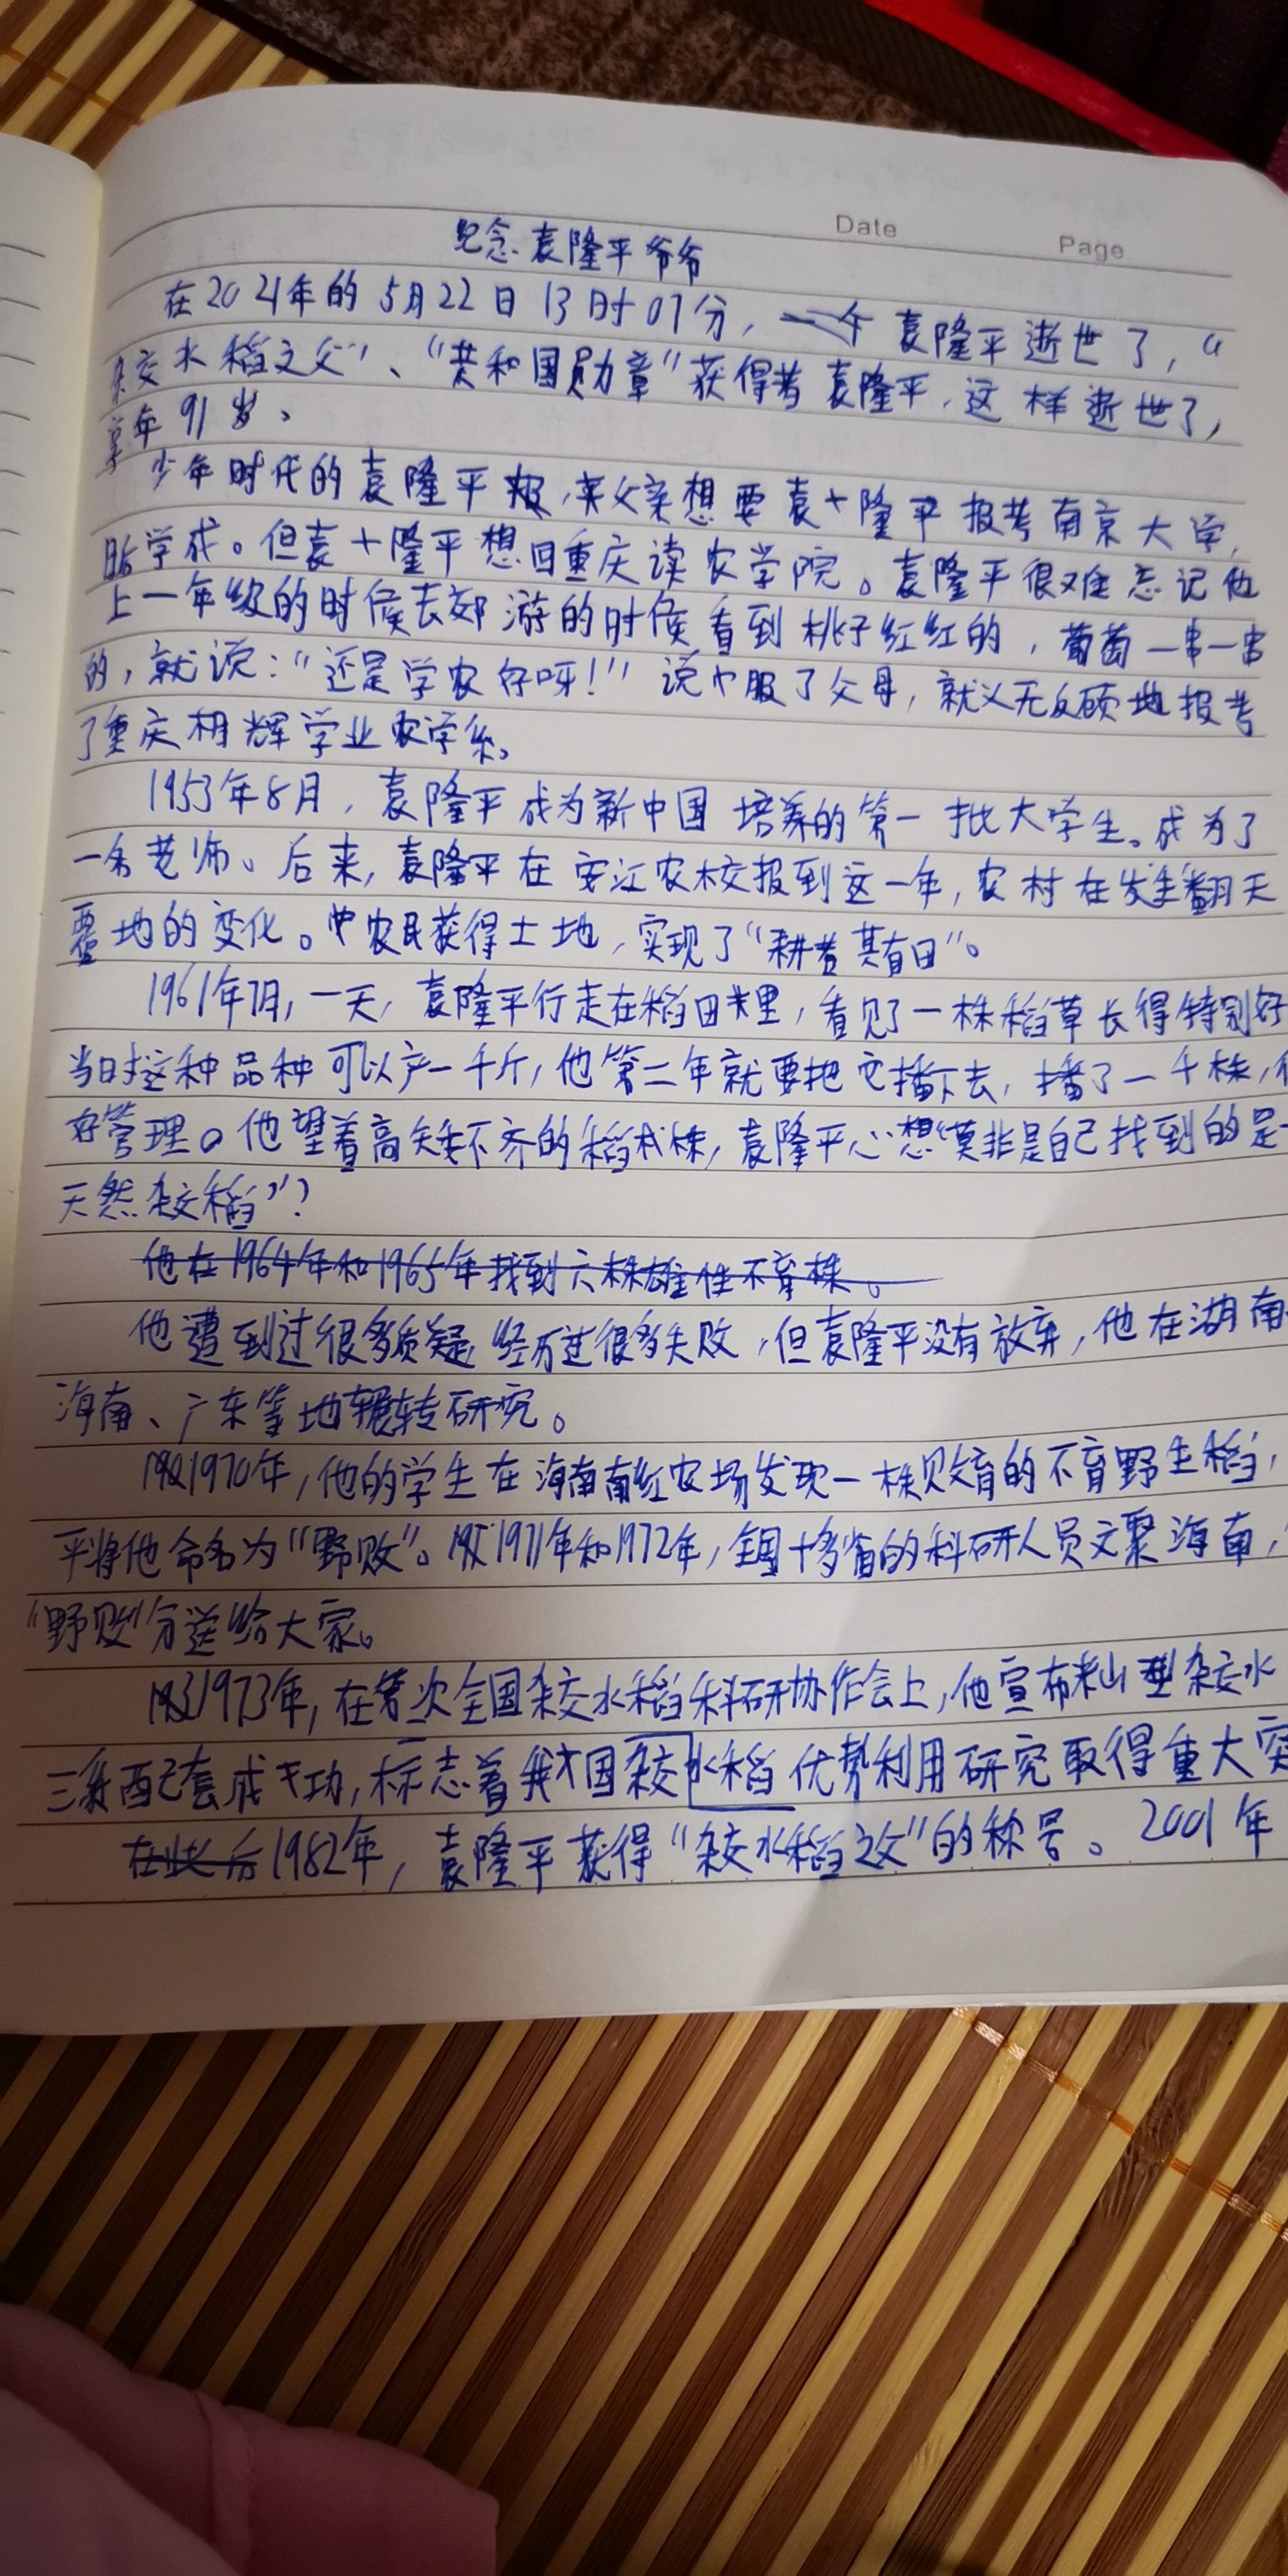 Date Page
纪念袁隆平爷爷
在2021年的5月22日13时07分，一个袁隆平逝世了，“
杂交水稻之父”、“共和国勋章”获得者袁隆平，这样逝世了，
享年91岁、
少年时代的袁隆平，父亲想要袁隆平报考南京大学，
学成。但袁隆平想回重庆读农学院。袁隆平很难忘记他
上一年级的时候去郊游的时候看到桃子红红的，葡萄一串一串
的，就说：“还是学农好呀！”说服了父母，就义无反顾地报考
了重庆相辉学业农学系。
1953年8月，袁隆平成为新中国培养的第一批大学生。成为了
一名老师。后来，袁隆平在安江农校报到这一年，农村在发生翻天
覆地的变化。农民获得土地，实现了“耕者其有田”。
1961年7月，一天，袁隆平行走在稻田里，看见了一株稻草长得特别好
当时这种品种可以产一千斤，他第二年就要把它播下去，播了一千株，
好管理。他望着高矮不齐的稻株，袁隆平心想“莫非是自己找到的是
天然杂交稻”？
他在1964年和1965年找到六株雄性不育株。
他遭到过很多质疑，经历过很多失败，但袁隆平没有放弃，他在湖南
海南、广东等地辗转研究。
1970年，他的学生在海南南红农场发现一株败育的不育野生稻，
平将他命名为“野败”。1971年和1972年，全国十多省的科研人员文聚海南，
“野败”分送给大家。
1973年，在第二次全国杂交水稻科研协作会上，他宣布籼型杂交水
三系配套成功，标志着我国杂交水稻优势利用研究取得重大突
在此后1982年，袁隆平获得“杂交水稻之父”的称号。2001年